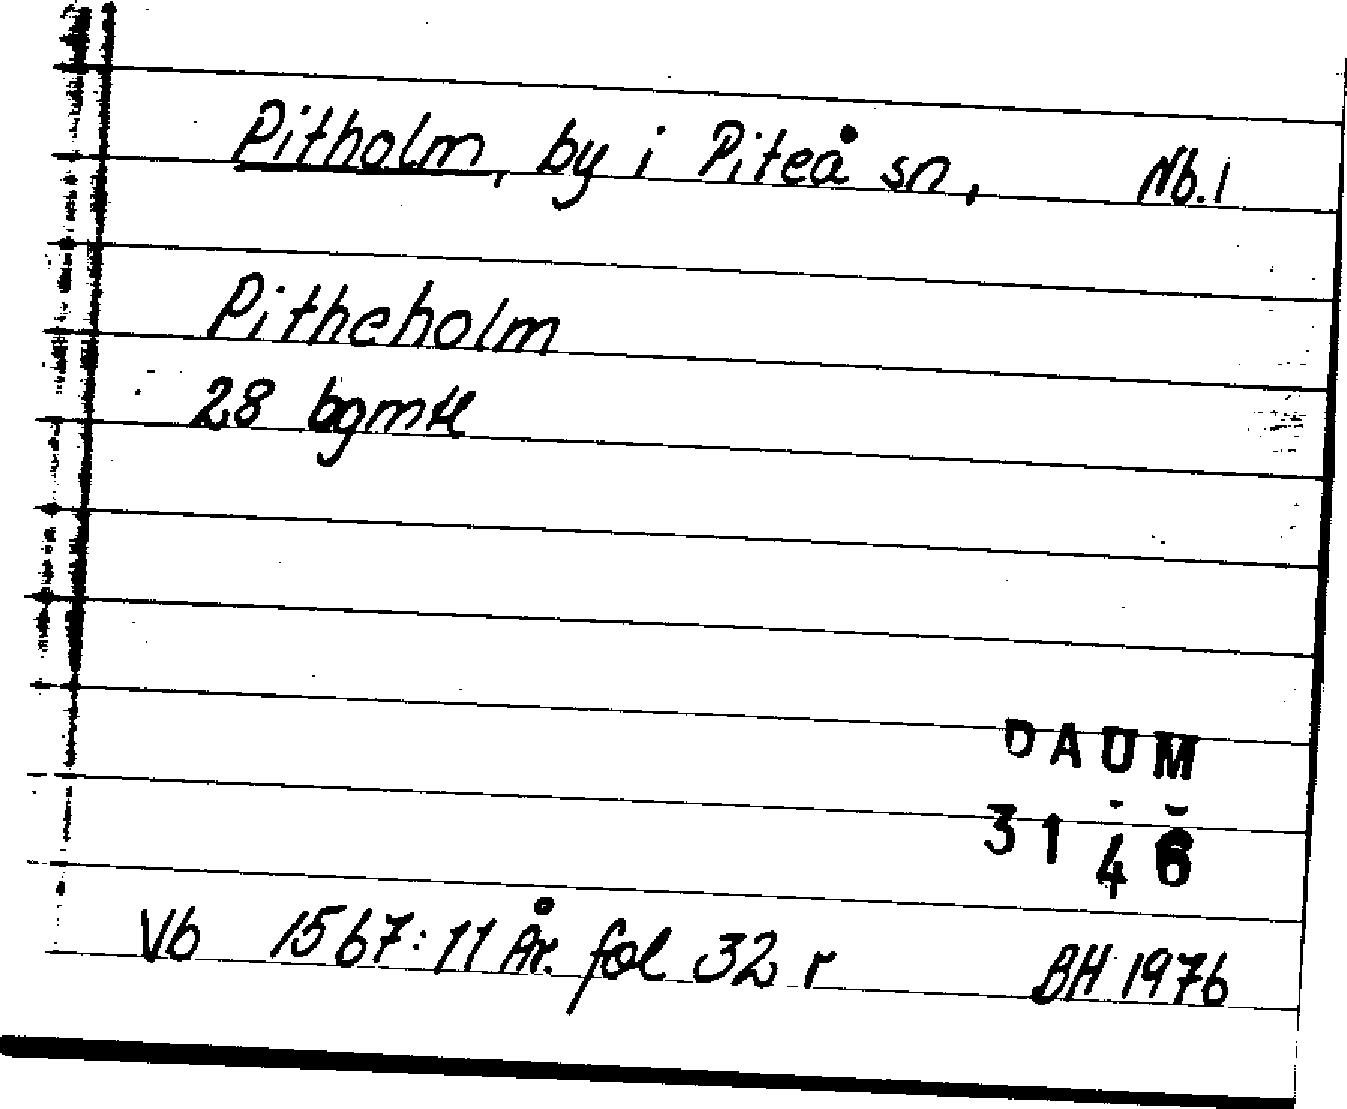 Pitholm, by i Piteå sn, Nb. 1
Pitheholm
28 bgmtl
DAUM
3146
Vb 1567:11 År. fol 32 r BH 1976